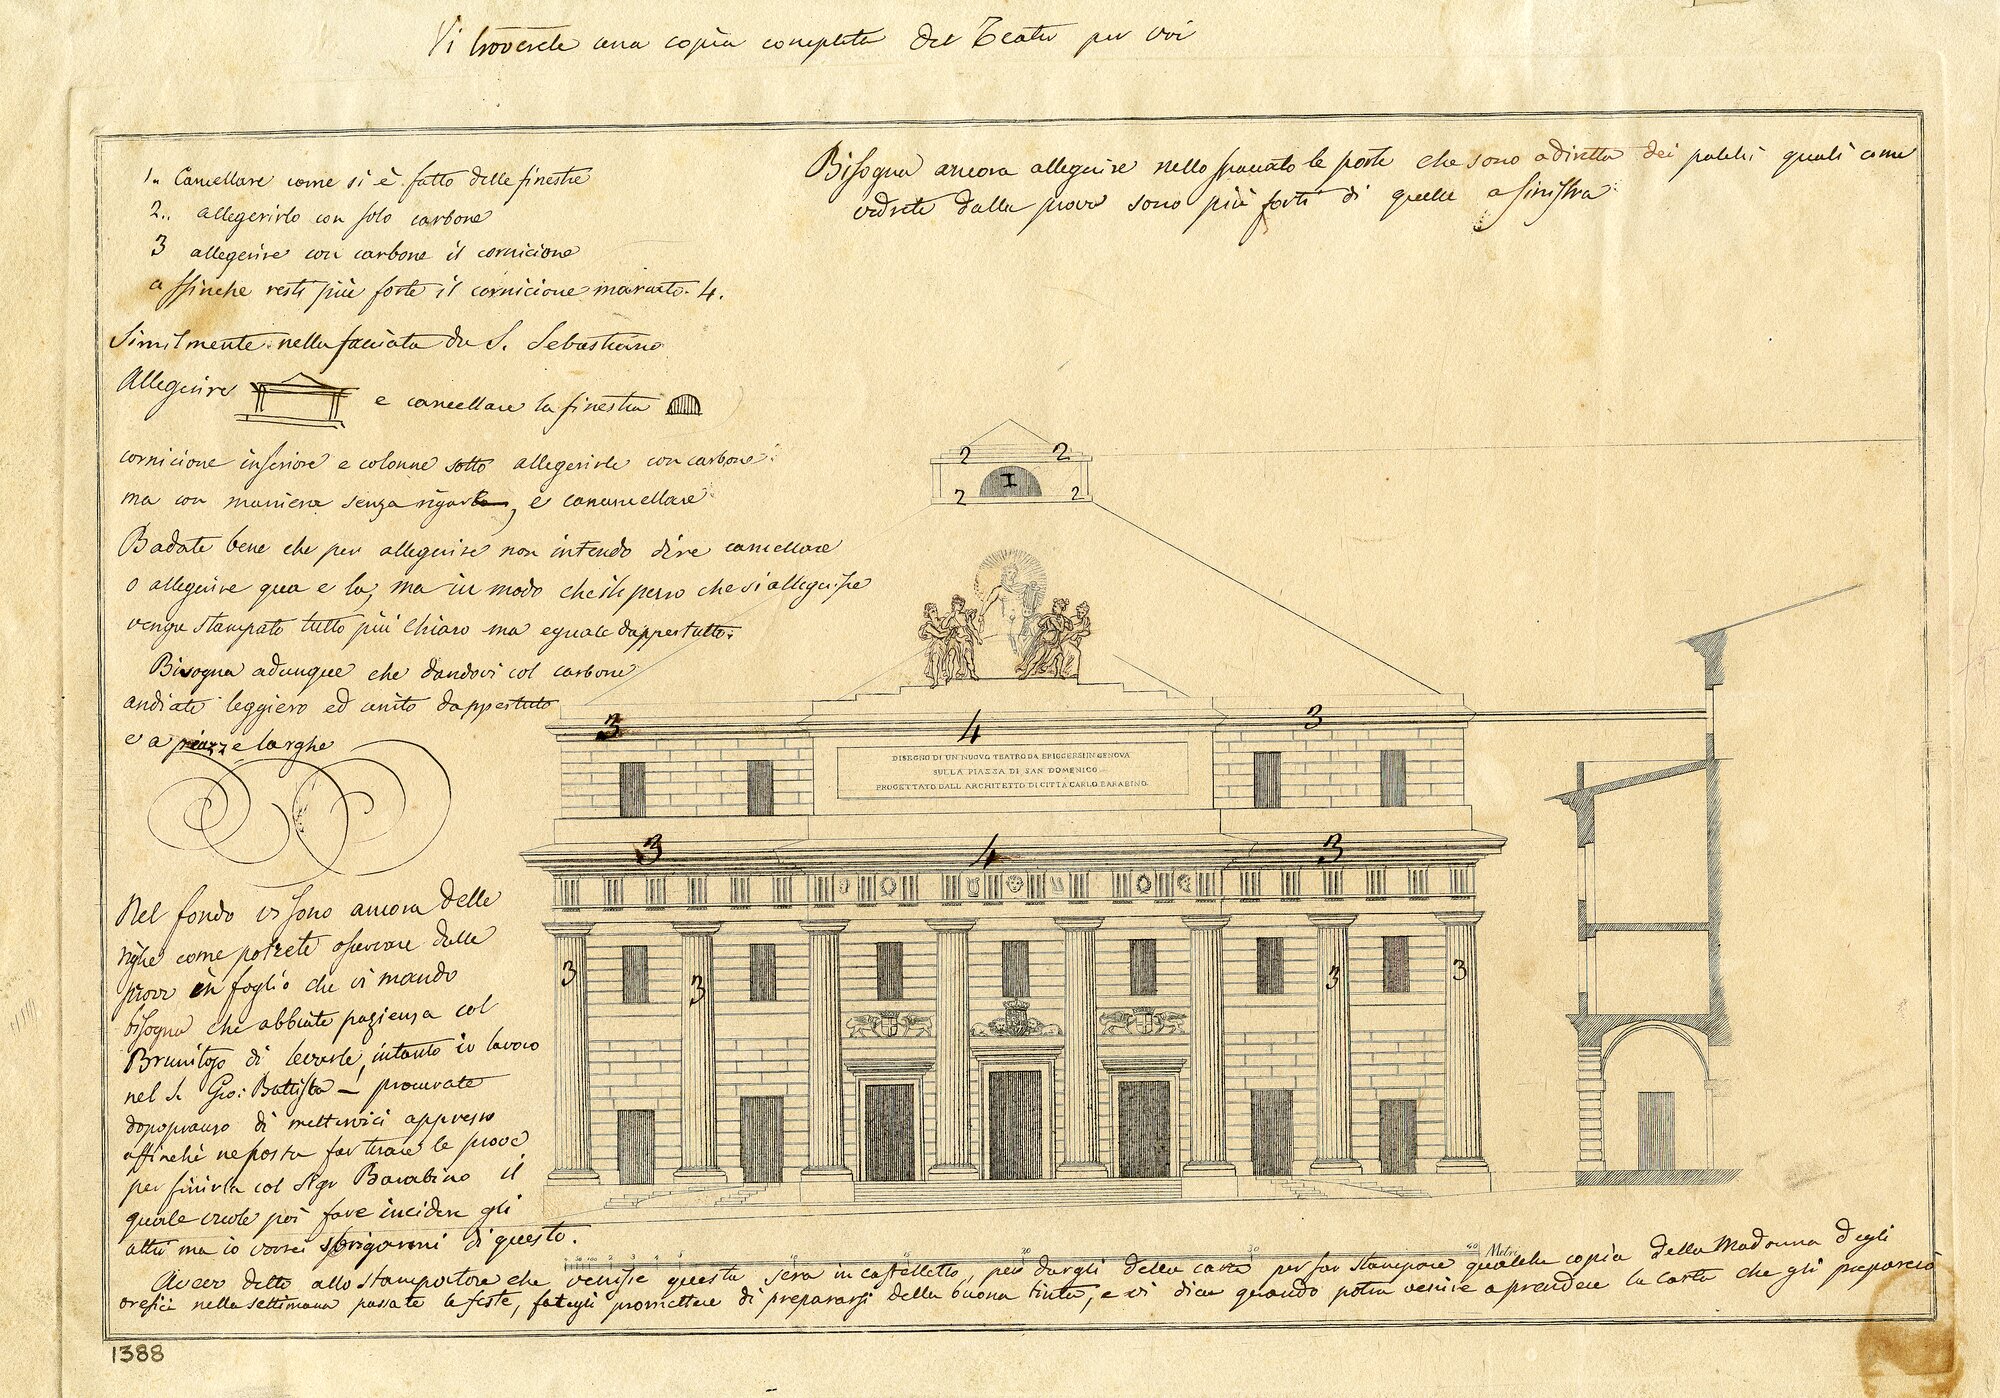 Vi troverete una copia completa del Teatro per voi
1.. Cancellare come si è fatto delle finestre
2.. allegerirlo con solo carbone
3 allegerire con carbone il cornicione
affinche resti più forte il cornicione marcato. 4.
Similmente nella facciata da S. Sebastiano
Allegerire e cancellare la finestra
cornicione inferiore e colonne sotto allegerirle con carbone
ma con maniera senza e
Badate bene che per allegerire non intendo dire cancellare
o allegerire qua e la, ma in modo che il pezzo che si allegerisce
venga stampato tutto più chiaro ma eguale dappertutto.
Bisogna adunque che dandovi col carbone
andiate leggiero ed unito dappertutto
e a piazze larghe
Bisogna ancora allegerire nello spaccato le porte che sono a diritta dei palchi quali come
vedrete dalla prova sono più forti di quelle a sinistra
2 2
1
2 2
3 4 3
DISEGNO DI UN NUOVO TEATRO DA ERIGGERSI IN GENOVA
SULLA PIAZZA DI SAN DOMENICO
PROGETTATO DALL ARCHITETTO DI CITTA CARLO BARABINO
3 4 3
3 3 3 3
Nel fondo vi sono ancora delle
righe come potrete osservare dalla
prova in foglio che vi mando
bisogna che abbiate pazienza col
Brunitojo di levarle, intanto io lavoro
nel S. Gio: Battista – procurate
dopopranzo di mettervici appresso
affinchè ne possa far tirare le prove
per finirla col Sigr Barabino il
quale vuole poi fare incidere gli
altri ma io vorrei sbrigarmi di questo.
10 15 20 30 40 Metri
Avevo detto allo stampatore che venisse questa sera in castelletto, per dargli della carta per far stampare qualche copia della Madonna degli
orefici nella settimana passate le feste, fategli promettere di prepararsi della buona tinta, e vi dica quando potra venire a prendere la carta che gli preparerò
1388